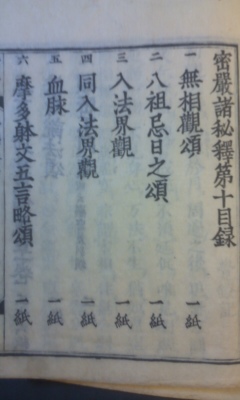 密嚴諸秘釋第十目録
一 無相觀頌 一紙
二 八祖忌日之頌 一紙
三 入法界觀 一紙
四 同入法界觀 一紙
五 血脉 一紙
六 摩多躰文五言略頌 一紙